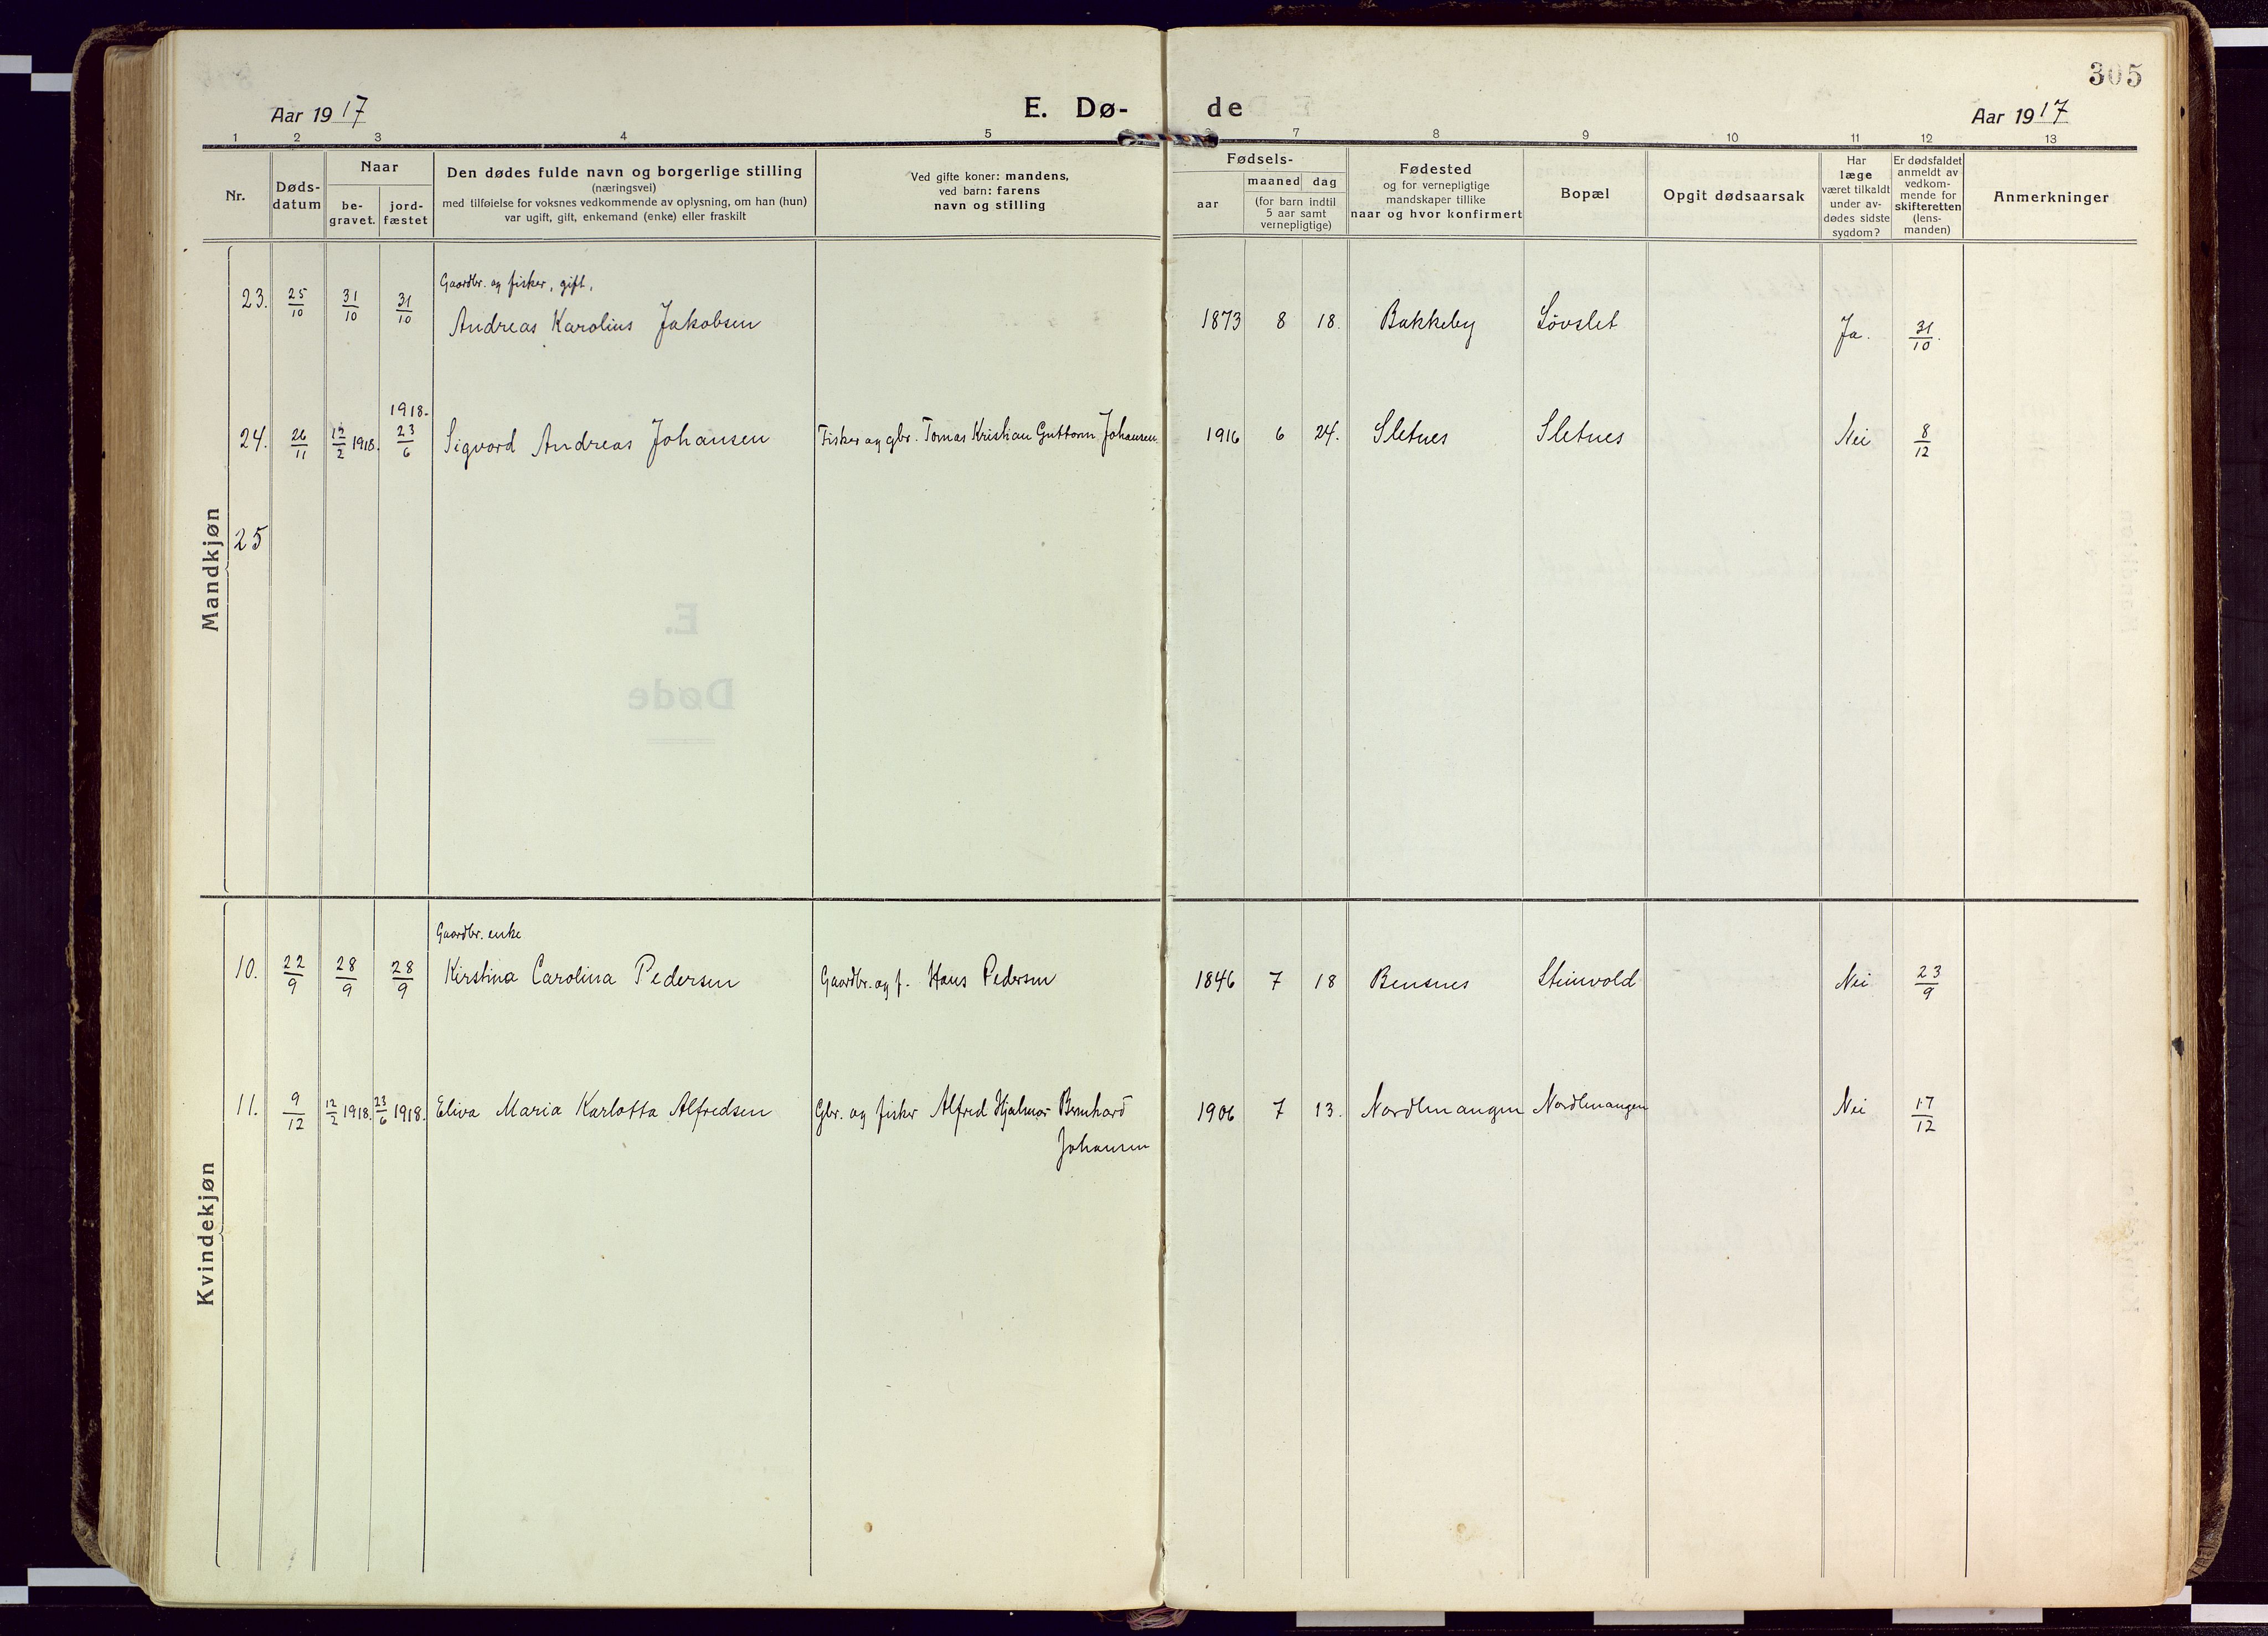 305
Aar 1917
E. Dø-
de
Aar 1917
1 2 3 4 5 6 7 8 9 10 11 12 13
Nr.
Døds-
datum
Naar
be-
gravet.
jord-
fæstet
Den dødes fulde navn og borgerlige stilling
(næringsvei)
med tilføielse for voksnes vedkommende av oplysning, om han (hun)
var ugift, gift, enkemand (enke) eller fraskilt
Ved gifte koner: mandens,
ved barn: farens
navn og stilling
Fødsels-
aar
maaned dag
(for barn indtil
5 aar samt
vernepligtige)
Fødested
og for vernepligtige
mandskaper tillike
naar og hvor konfirmert
Bopæl
Opgit dødsaarsak
Har
læge
været tilkaldt
under av-
dødes sidste
sygdom?
Er dødsfaldet
anmeldt av
vedkom-
mende for
skifteretten
(lens-
manden)
Anmerkninger
Mandkjøn
Gaardbr. og fisker, gift,
23. 25/10 31/10 31/10 Andreas Karolius Jakobsen 1873 8 18. Bakkeby Lövslet Ja. 31/10.
1918.
24. 26/11 12/2 1918. 23/6 Sigvard Andreas Johansen Fisker og gbr. Tomas Kristian Guttorm Johansen 1916 6 24. Sletnes Sletnes Nei 8/12
25
Kvindekjøn
Gaardbr. enke
10. 22/9 28/9 28/9 Kirstina Carolina Pedersen Gaardbr. og f. Hans Pedersen 1846 7 18 Bensnes Steinvold Nei 23/9
11. 9/12 12/2 1918. 23/6 1918. Eliva Maria Karlotta Alfredsen Gbr. og fisker Alfred Hjalmar Bernhard 1906 7 13. Nordlenangen Nordlenangen Nei 17/12
Johansen